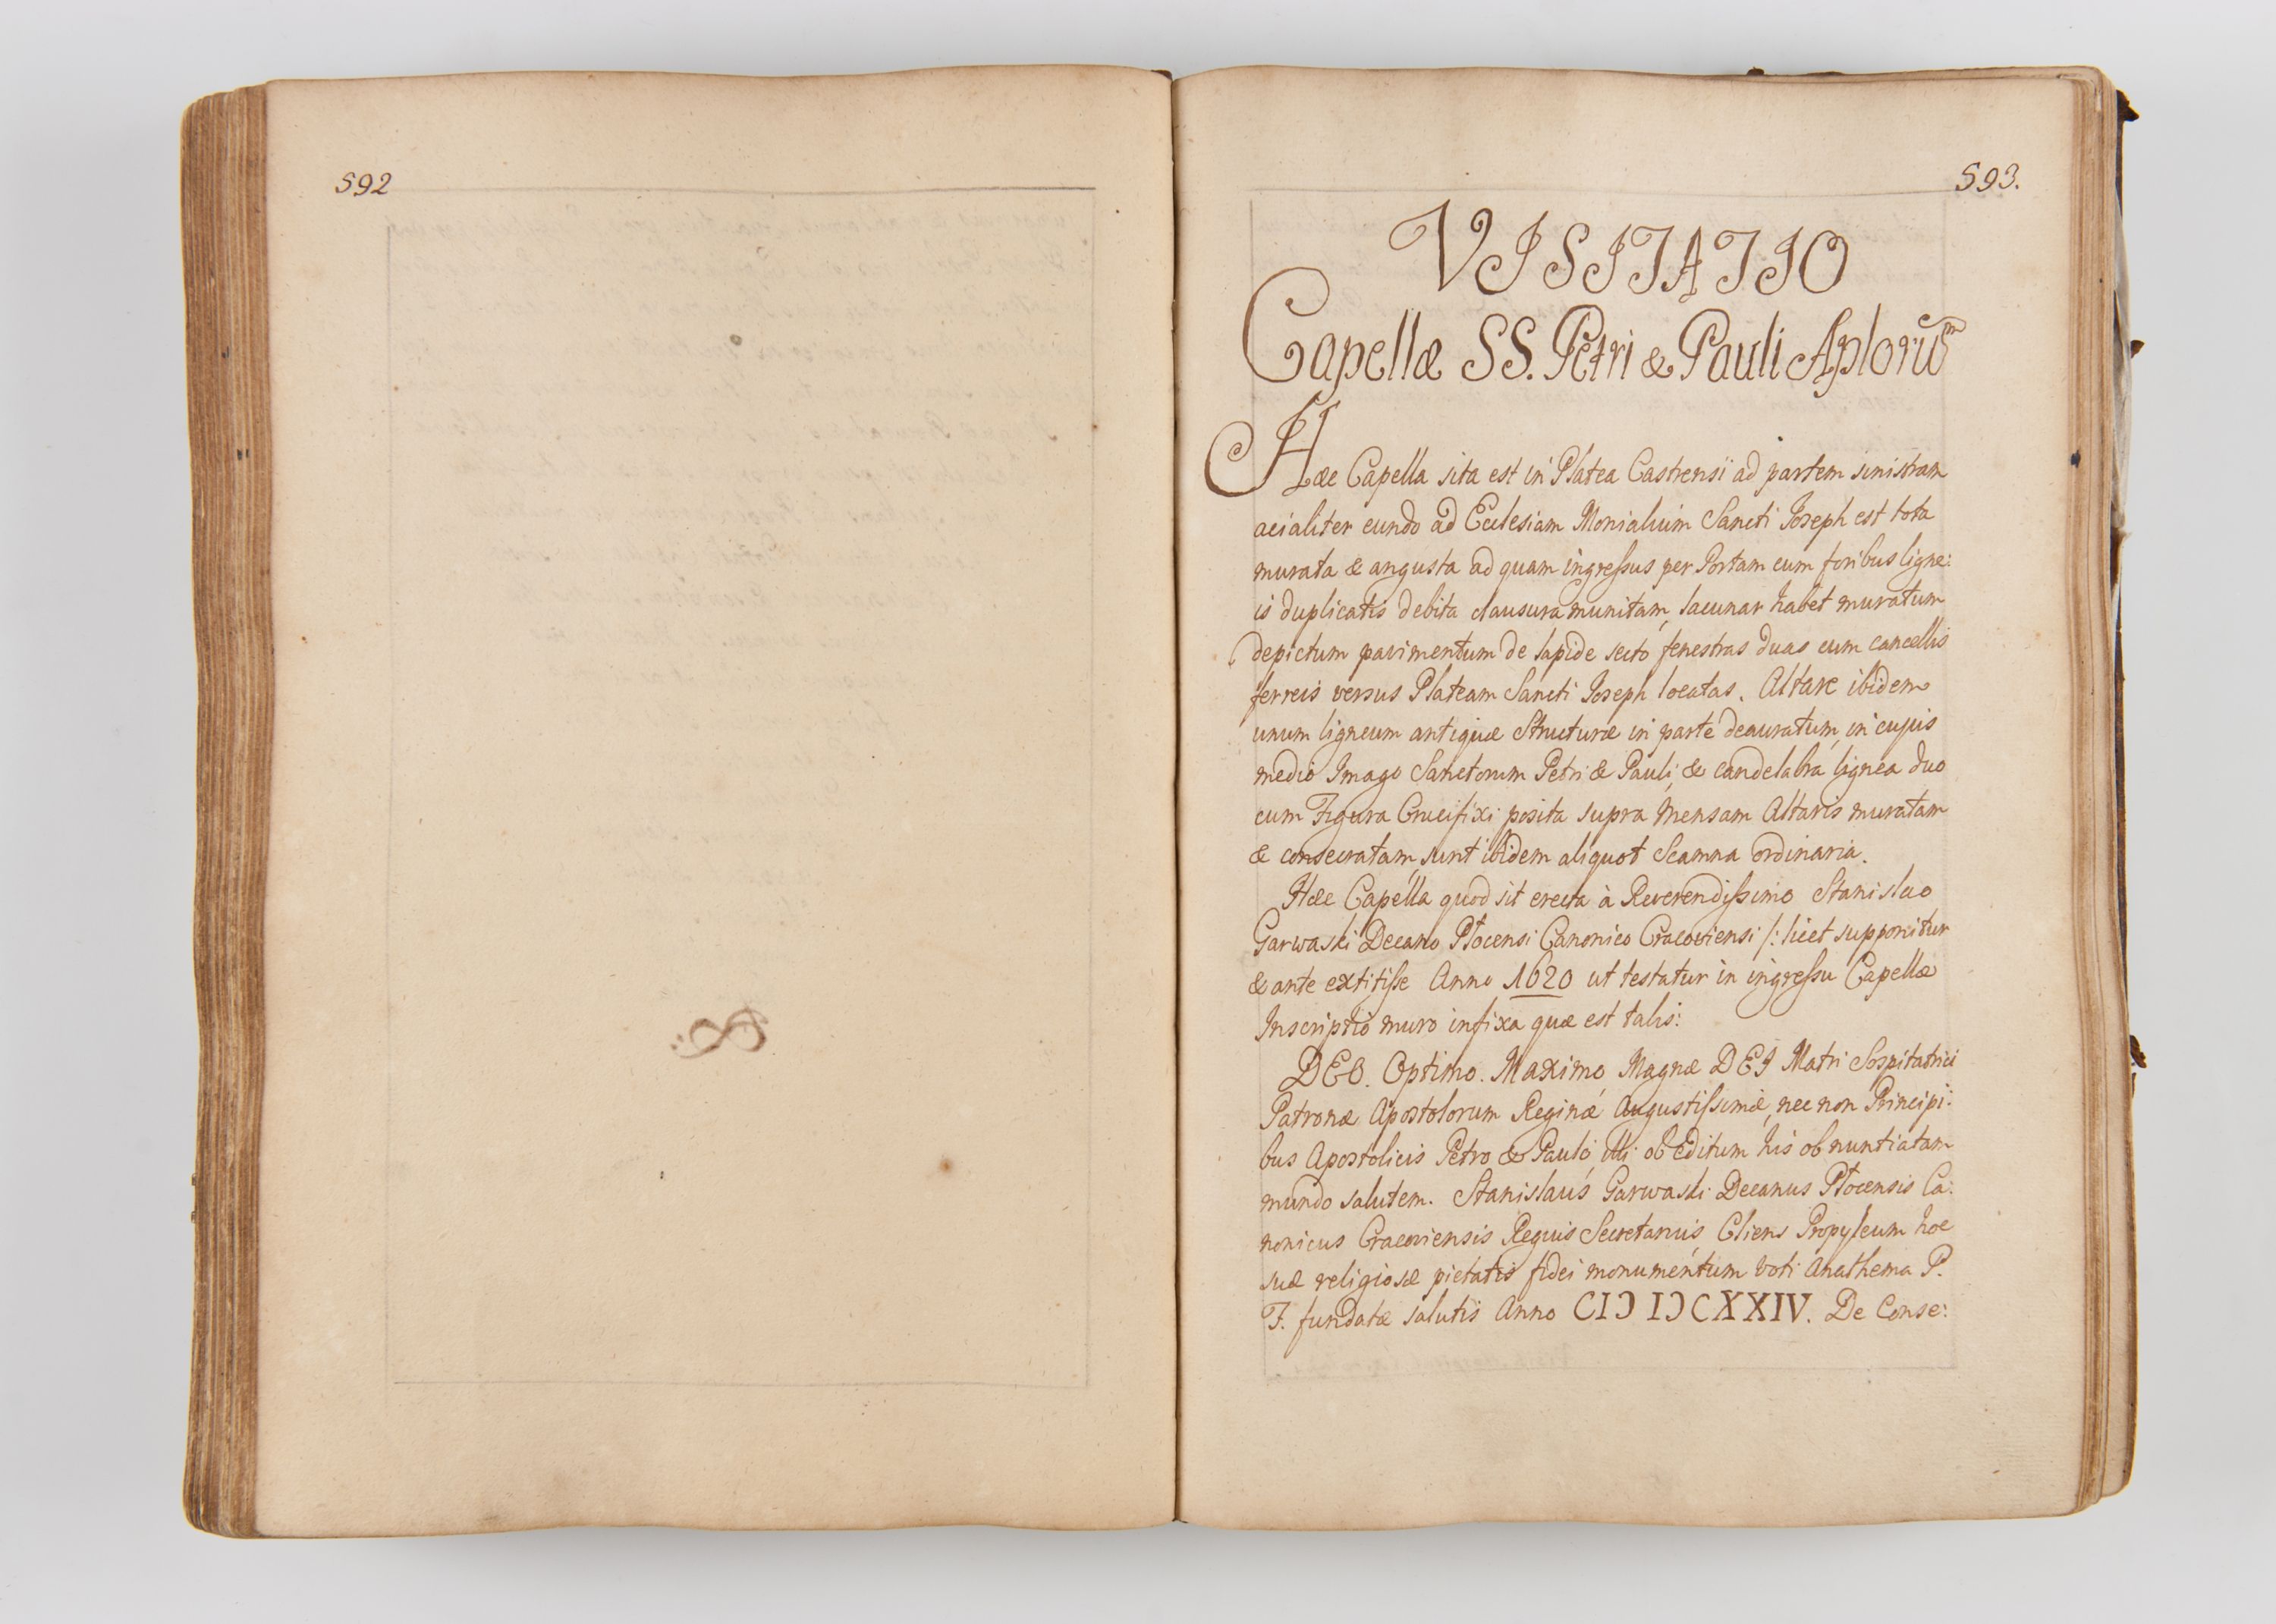 592
593.
VISITATIO
Capellæ SS. Petri & Pauli Aplorũm
Hæc Capella sita est in Platea Castrensi ad partem sinistram
acialiter eundo ad Ecclesiam Monialium Sancti Joseph est tota
murata & angusta ad quam ingressus per Portam cum foribus ligne:
is duplicatis debita clausura munitam, lacunar habet muratum
depictum pavimentum de lapide secto fenestras duas cum cancellis
ferreis versus Plateam Sancti Joseph locatas. Altare ibidem
unum ligneum antiquæ Structuræ in parte deauratum, in cujus
medio Imago Sanctorum Petri & Pauli, & candelabra lignea duo
cum Figura Crucifixi posita supra Mensam Altaris muratam
& consecratam, sunt ibidem aliquot Scamna ordinaria.
Hæc Capella quod sit erecta à Reverendissimo Stanislao
Garwaski Decano Płocensi Canonico Cracoviensi /: licet supponitur
& ante extitisse Anno 1620 ut testatur in ingressu Capellæ
Inscriptio muro infixa quæ est talis:
DEO. Optimo. Maximo Magnæ DEI Matri Sospitatrici
Patronæ Apostolorum Reginæ Augustissimæ, nec non Principi:
bus Apostolicis Petro & Paulo illi ob Editum his ob nuntiatam
mundo salutem. Stanislaus Garwaski Decanus Płocensis Ca:
nonicus Cracoviensis Regius Secretarius Cliens Propyleum hoc
suæ religiosæ pietatis fidei monumentum voti Anathema P.
F. fundatæ salutis Anno CIƆ IƆCXXIV. De Conse: